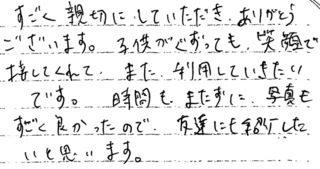 すごく 親切に していただき ありがとう
ございます。 子供がぐずっても、笑顔で
接してくれて、また 利用していきたい
です。 時間も またずに、写真も
すごく良かったので、友達にも紹介した
いと思います。